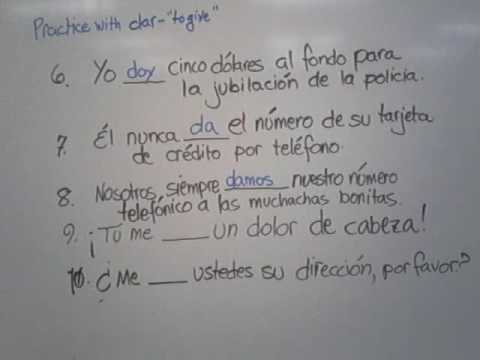 Practice with dar-"to give"
6. Yo doy cinco dólares al fondo para
la jubilación de la policía.
7. Él nunca da el número de su tarjeta
de crédito por teléfono.
8. Nosotros siempre damos nuestro número
telefónico a las muchachas bonitas.
9. ¡Tú me ___ un dolor de cabeza!
10. ¿Me ___ ustedes su dirección, por favor?